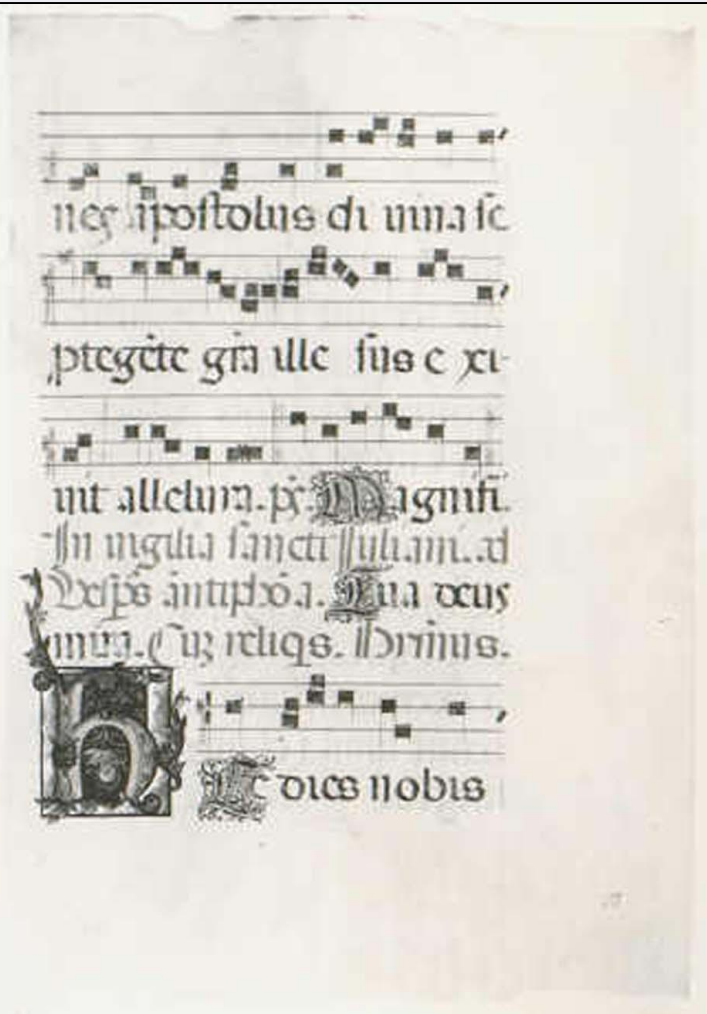 nes apostolus di uina sc
ptegēte grā ille sus e xi-
uit alleluya. ps. Magnifi.
In uigilia sancti Juliani. ad
Vesps antiphōa. deus
Cuz reliqs. Hymnus.
H E dies nobis